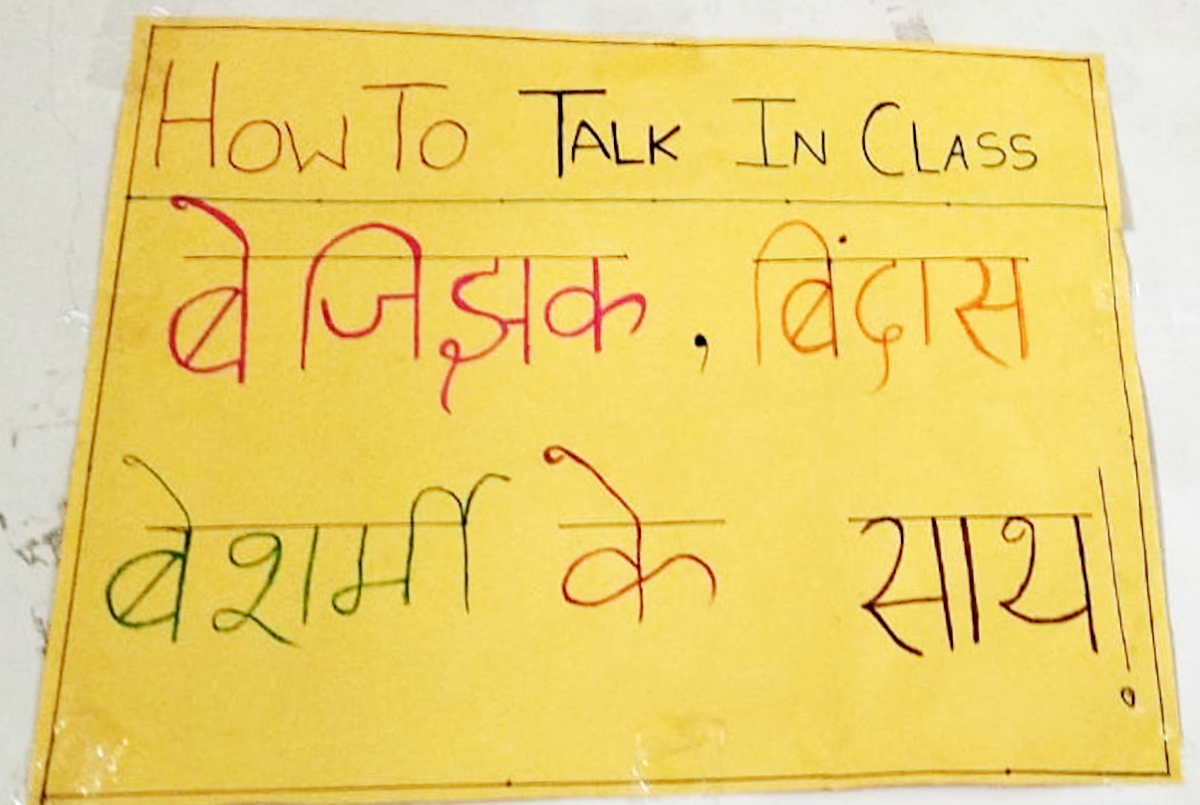 HOW TO TALK IN CLASS
बेजिझक, बिंदास
बेशर्मी के साथ!